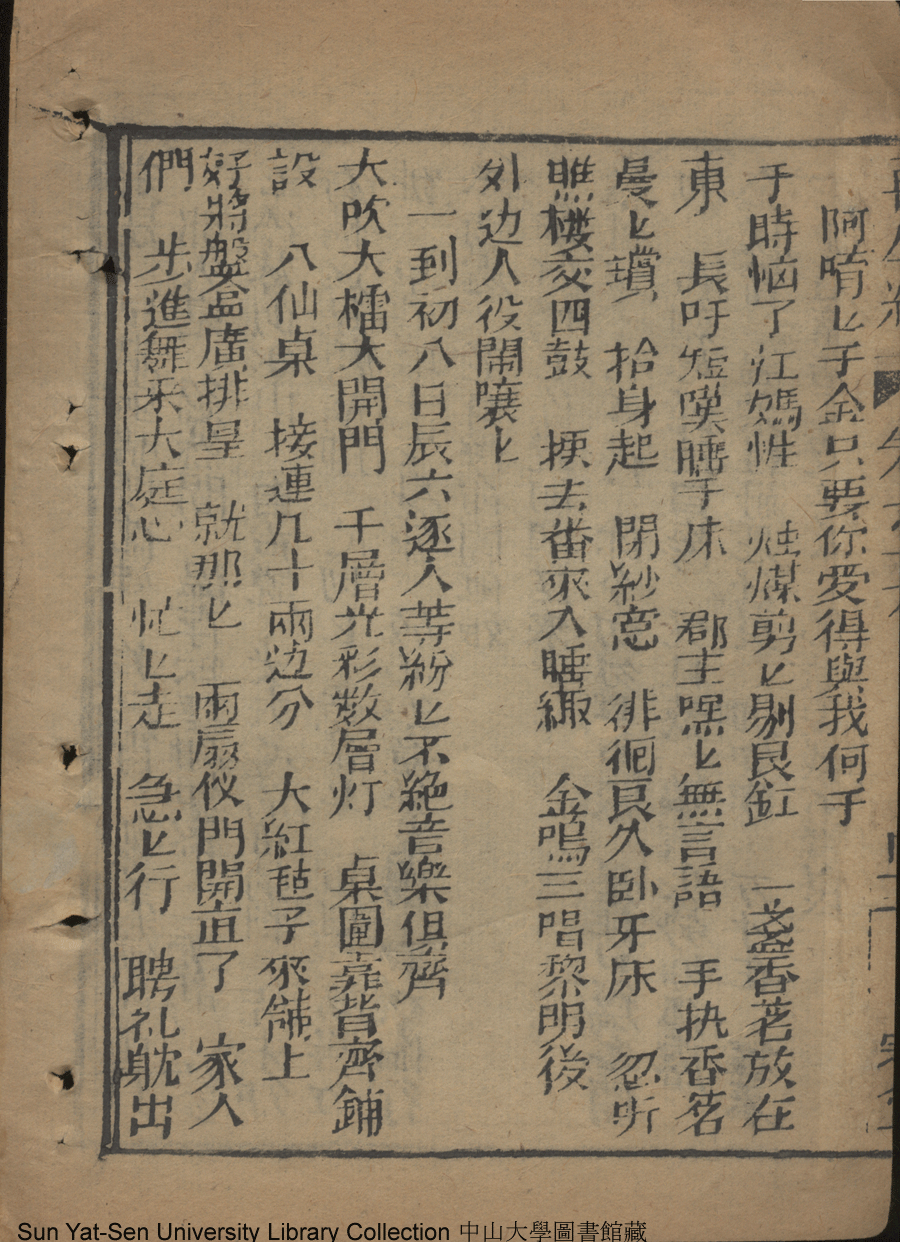 阿唷匕千金只要你愛得與我何干
于時恼了江媽性 炷煤剪匕剔艮缸 一盞香茗放在
東 長吁短嘆睡于床 郡主嘿匕無言語 手执香茗
曼匕 抬身起 閉紗窓 徘徊良久卧牙床 忽听
樓交四鼓 去番來入睡 金鳴三唱黎明後
外边人役鬧嚷匕
一到初八日辰六逐人等粉匕不絶音樂俱齊
大吹大擂大開門 千層光彩数層灯 桌圍靠背齊鋪
設 八仙桌 接連几十兩边分 大紅毡子來鋪上
好將盤盒廣排呈 就那匕 兩扇仪門開直了 家人
們 步進舞采大庭心 忙匕走 急匕行 聘礼躭出
Sun Yat-Sen University Library Collection 中山大學圖書館藏